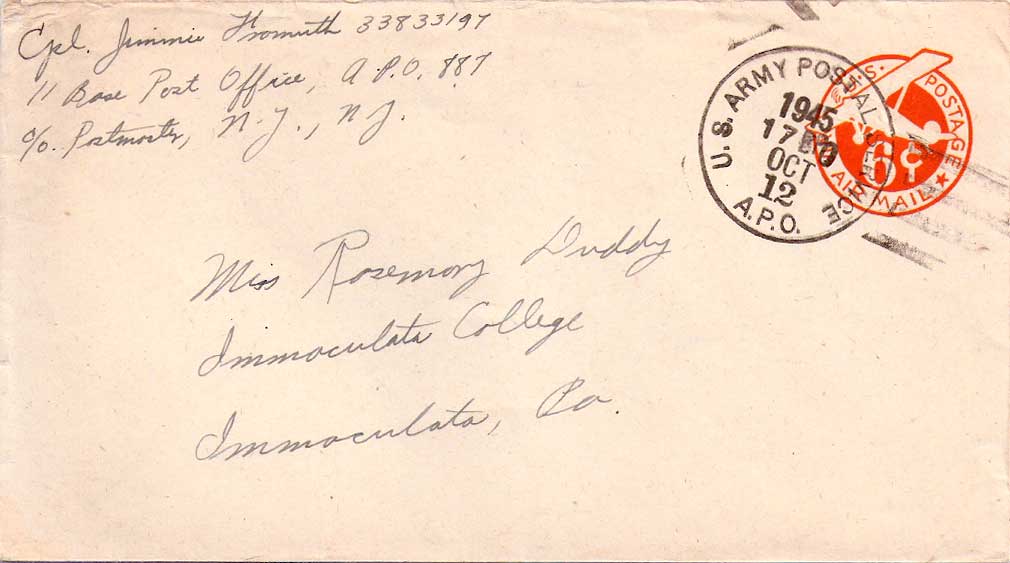 Cpl. Jimmie Fromuth 33833197
11 Base Post Office, A.P.O. 887
c/o. Postmaster, N.Y., N.Y.
U.S. ARMY POSTAL SERVICE
1945
17
OCT
12
A.P.O.
U.S. POSTAGE
6¢
AIR MAIL
Miss Rosemary Duddy
Immaculata College
Immaculata, Pa.